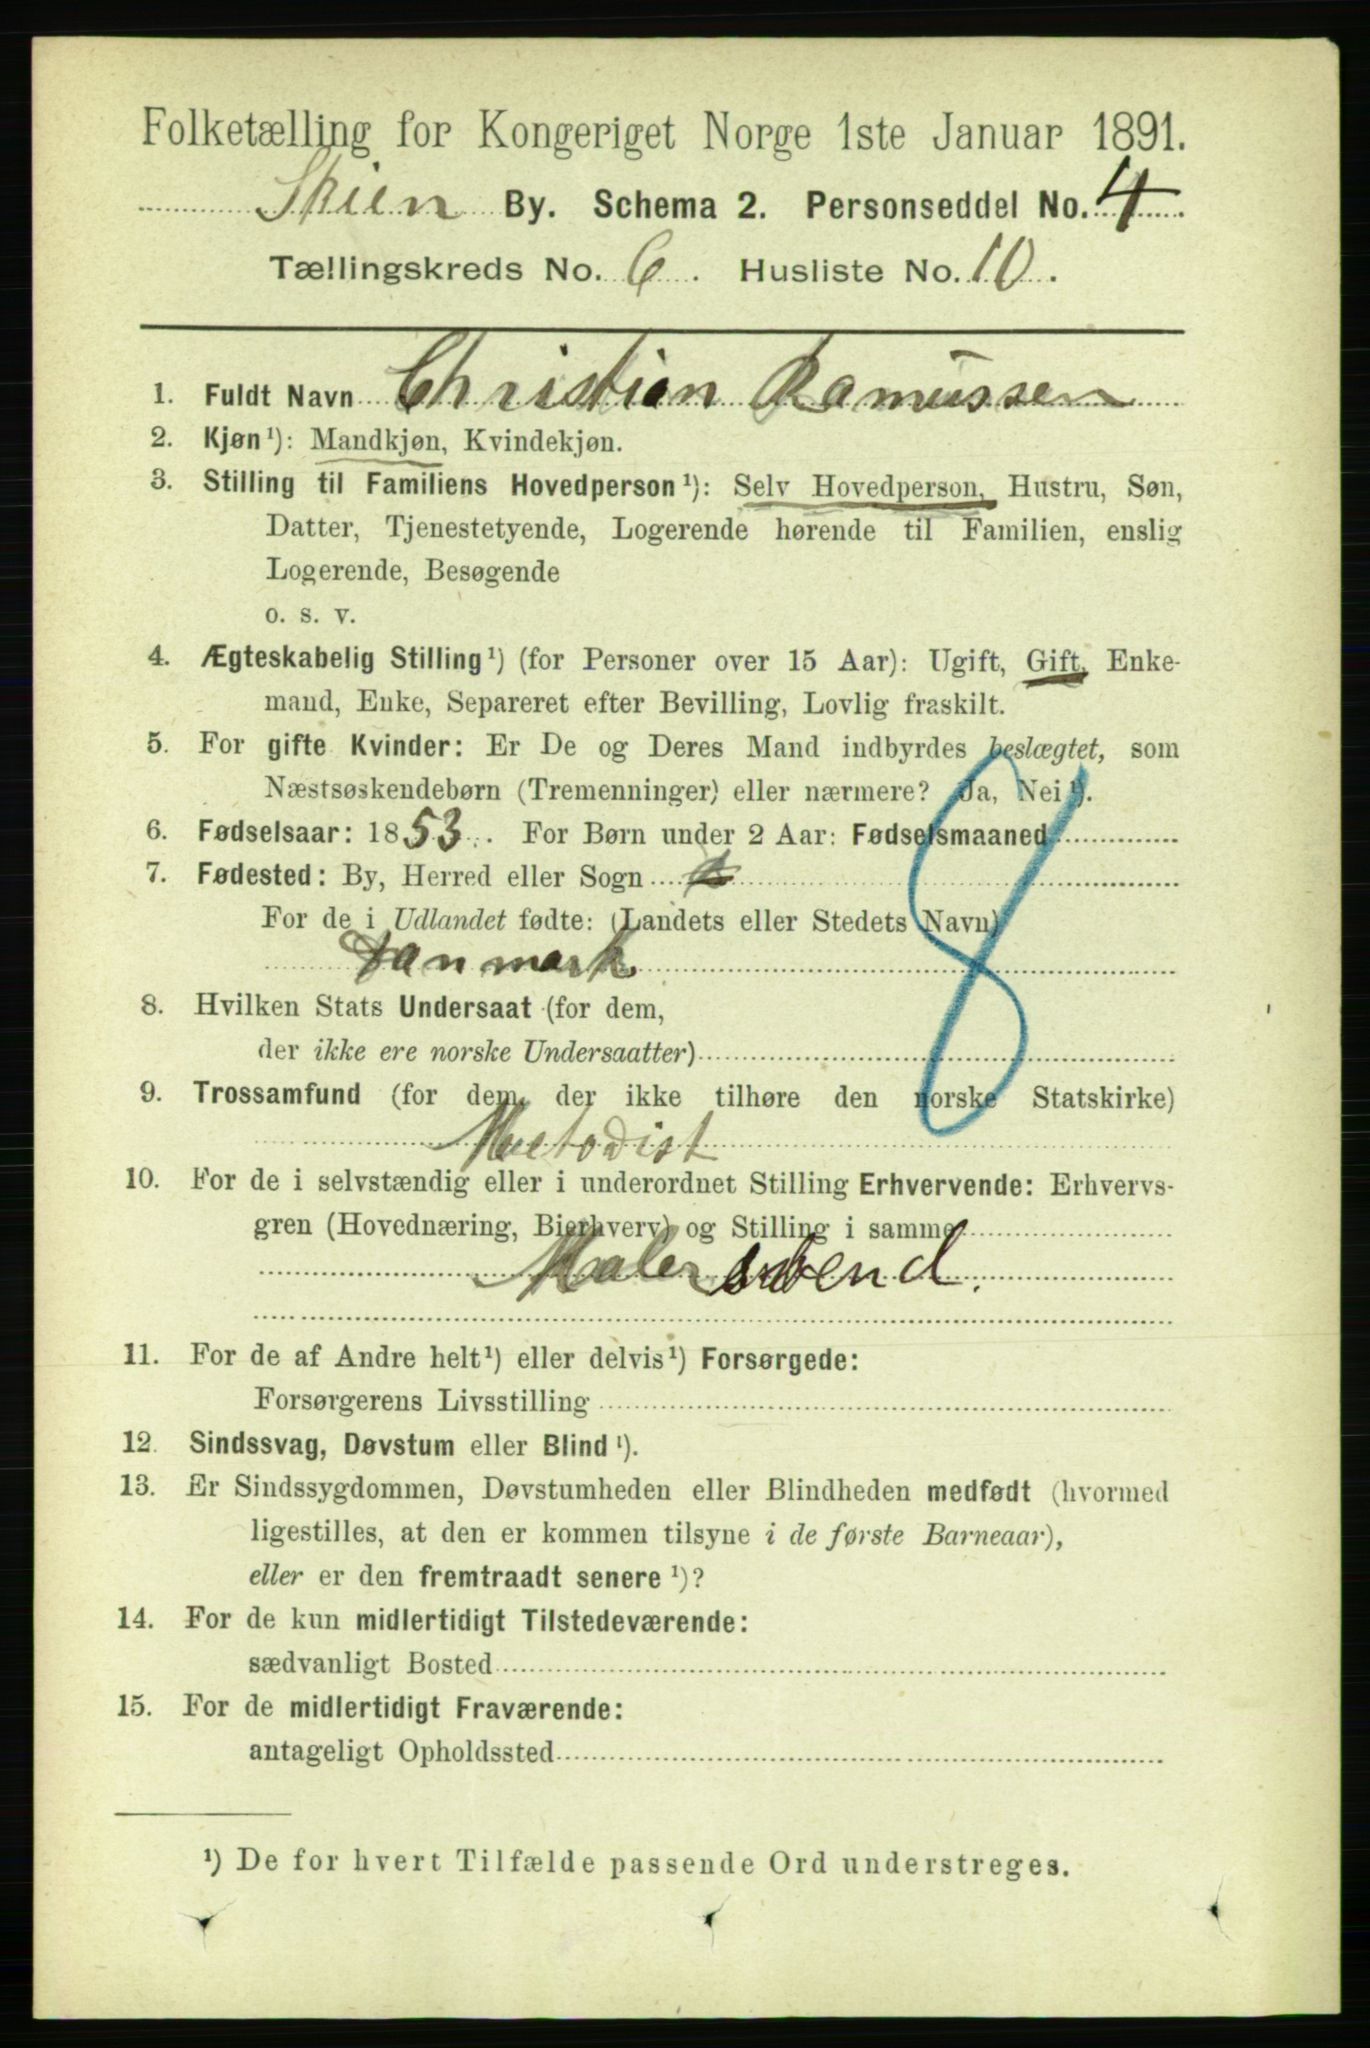 Folketælling for Kongeriget Norge 1ste Januar 1891.
Skien By. Schema 2. Personseddel No. 4
Tællingskreds No. 6. Husliste No. 10.
1. Fuldt Navn Christian Ramussen
2. Kjøn¹): Mandkjøn, Kvindekjøn.
3. Stilling til Familiens Hovedperson¹): Selv Hovedperson, Hustru, Søn,
Datter, Tjenestetyende, Logerende hørende til Familien, enslig
Logerende, Besøgende
o. s. v.
4. Ægteskabelig Stilling¹) (for Personer over 15 Aar): Ugift, Gift, Enke-
mand, Enke, Separeret efter Bevilling, Lovlig fraskilt.
5. For gifte Kvinder: Er De og Deres Mand indbyrdes beslægtet, som
Næstsøskendebørn (Tremenninger) eller nærmere? Ja, Nei¹).
6. Fødselsaar: 1853. For Børn under 2 Aar: Fødselsmaaned
7. Fødested: By, Herred eller Sogn
For de i Udlandet fødte: (Landets eller Stedets Navn)
Danmark
8
8. Hvilken Stats Undersaat (for dem,
der ikke ere norske Undersaatter)
9. Trossamfund (for dem, der ikke tilhøre den norske Statskirke)
Metodist
10. For de i selvstændig eller i underordnet Stilling Erhvervende: Erhvervs-
gren (Hovednæring, Bierhverv) og Stilling i samme
Malersvend.
11. For de af Andre helt¹) eller delvis¹) Forsørgede:
Forsørgerens Livsstilling
12. Sindssvag, Døvstum eller Blind¹).
13. Er Sindssygdommen, Døvstumheden eller Blindheden medfødt (hvormed
ligestilles, at den er kommen tilsyne i de første Barneaar),
eller er den fremtraadt senere¹)?
14. For de kun midlertidigt Tilstedeværende:
sædvanligt Bosted
15. For de midlertidigt Fraværende:
antageligt Opholdssted
¹) De for hvert Tilfælde passende Ord understreges.